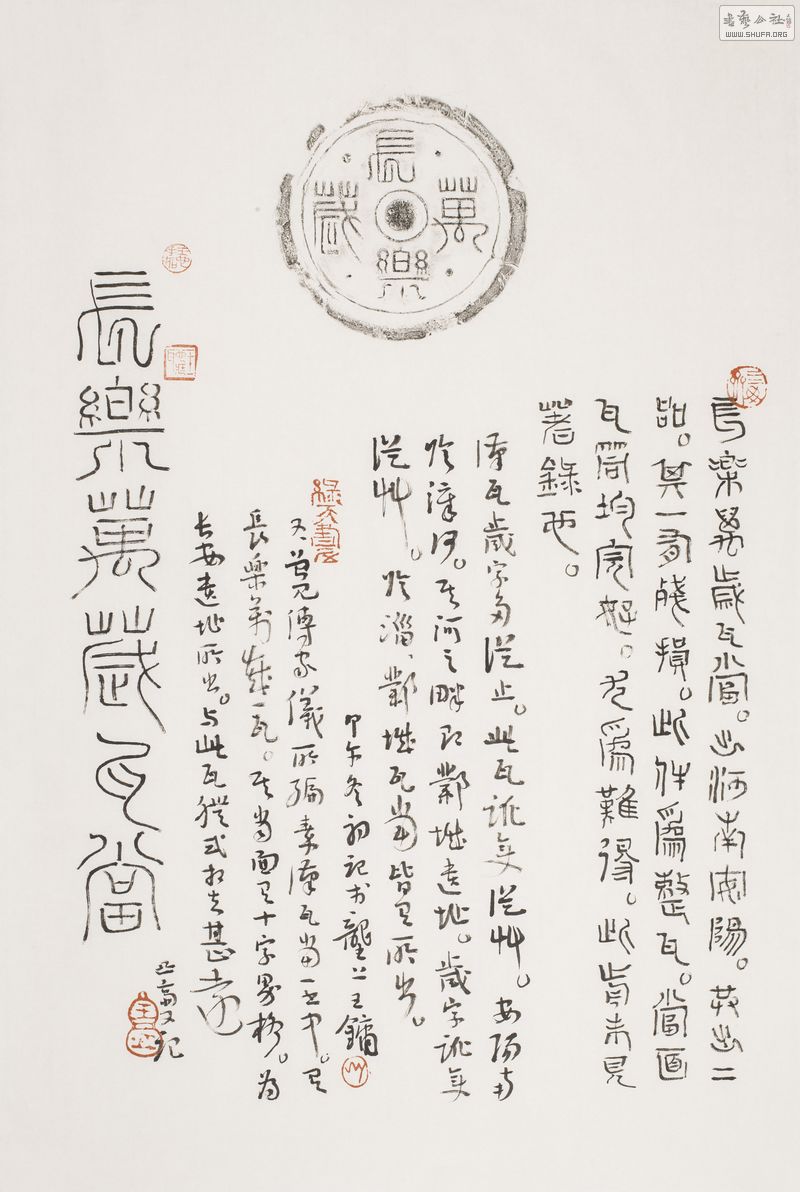 長樂萬歲瓦當。出河南安陽。共出二
品。其一有殘損。此件為整瓦。當面
瓦筒均完好。尤為難得。此前未見
著錄也。
漢瓦歲字多從止。此瓦訛變從艸。安陽南
臨漳河。其河之畔即鄴城遺址。歲字訛變
從艸。臨淄、鄴城瓦當皆見所出。
甲午冬初記於龔上王鏞
又、曾見傅嘉儀所編秦漢瓦當一書中。見
長樂萬歲一瓦。其當面見十字界格。為
長安遺址所出。與此瓦體式相去甚遠
長樂萬歲瓦當
又記
長樂萬歲
書藝公社
WWW.SHUFA.ORG